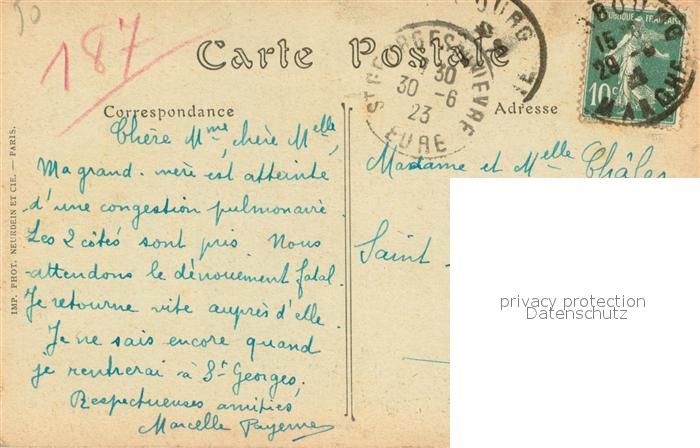 50
187
Carte Postale
Correspondance
Adresse
Chère Mme, chère Melle,
Ma grand-mère est atteinte
d'une congestion pulmonaire.
Les 2 côtés sont pris. Nous
attendons le dénouement fatal.
Je retourne vite auprès d'elle.
Je ne sais encore quand
je rentrerai à St Georges,
Respectueuses amitiés,
Marcelle Payenne
Madame et Melle Châles
Saint
IMP. PHOT. NEURDEIN ET CIE. — PARIS.
30
30 -6
23
EURE
10c
15
29
MANCHE
privacy protection
Datenschutz